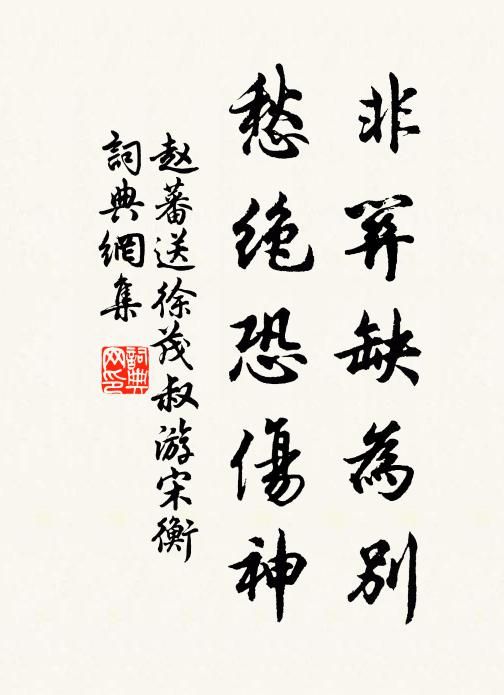 非缺為別
愁絕恐傷神
赵蕃送徐茂叔游宋衡
詞典網集
詞典网印